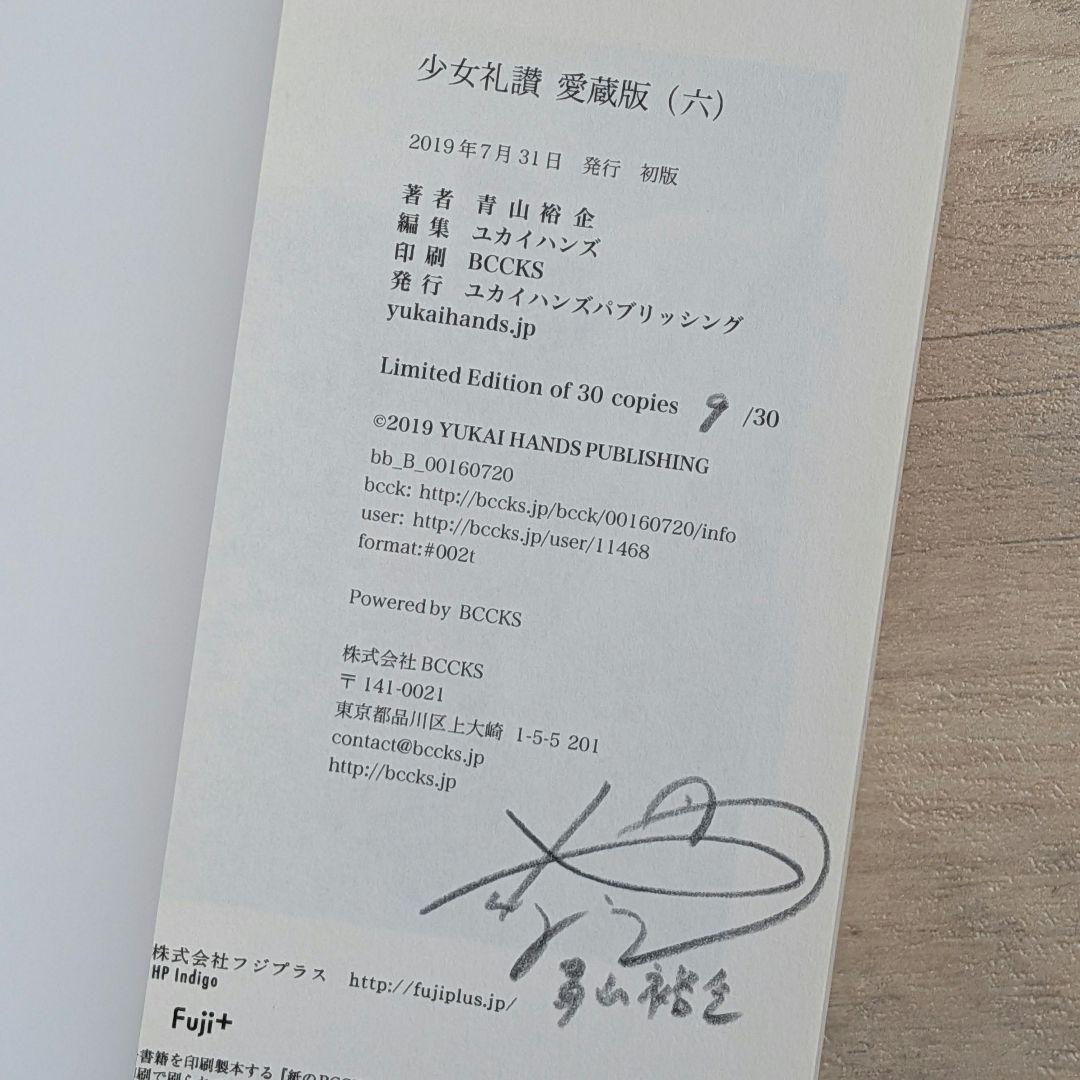 少女礼讃 愛蔵版（六）
2019年7月31日 発行 初版
著者 青山裕企
編集 ユカイハンズ
印刷 BCCKS
発行 ユカイハンズパブリッシング
yukaihands.jp
Limited Edition of 30 copies 9 /30
©2019 YUKAI HANDS PUBLISHING
bb_B_00160720
bcck: http://bccks.jp/bcck/00160720/info
user: http://bccks.jp/user/11468
format:#002t
Powered by BCCKS
株式会社BCCKS
〒141-0021
東京都品川区上大崎 1-5-5 201
contact@bccks.jp
http://bccks.jp
青山裕企
株式会社フジプラス http://fujiplus.jp/
HP Indigo
Fuji+
書籍を印刷製本する『紙のBCC